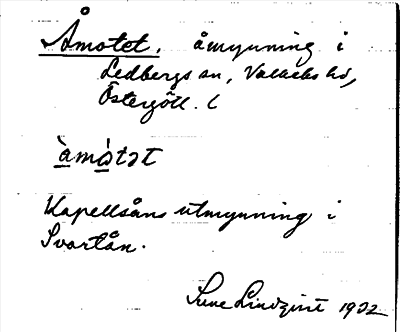 Åmotet, åmynning i
Ledbergs sn, Valkebo hd,
Östergötl. (
àmòtət
Kapellsåns utmynning i
Svartån.
Sune Lindqvist 1902